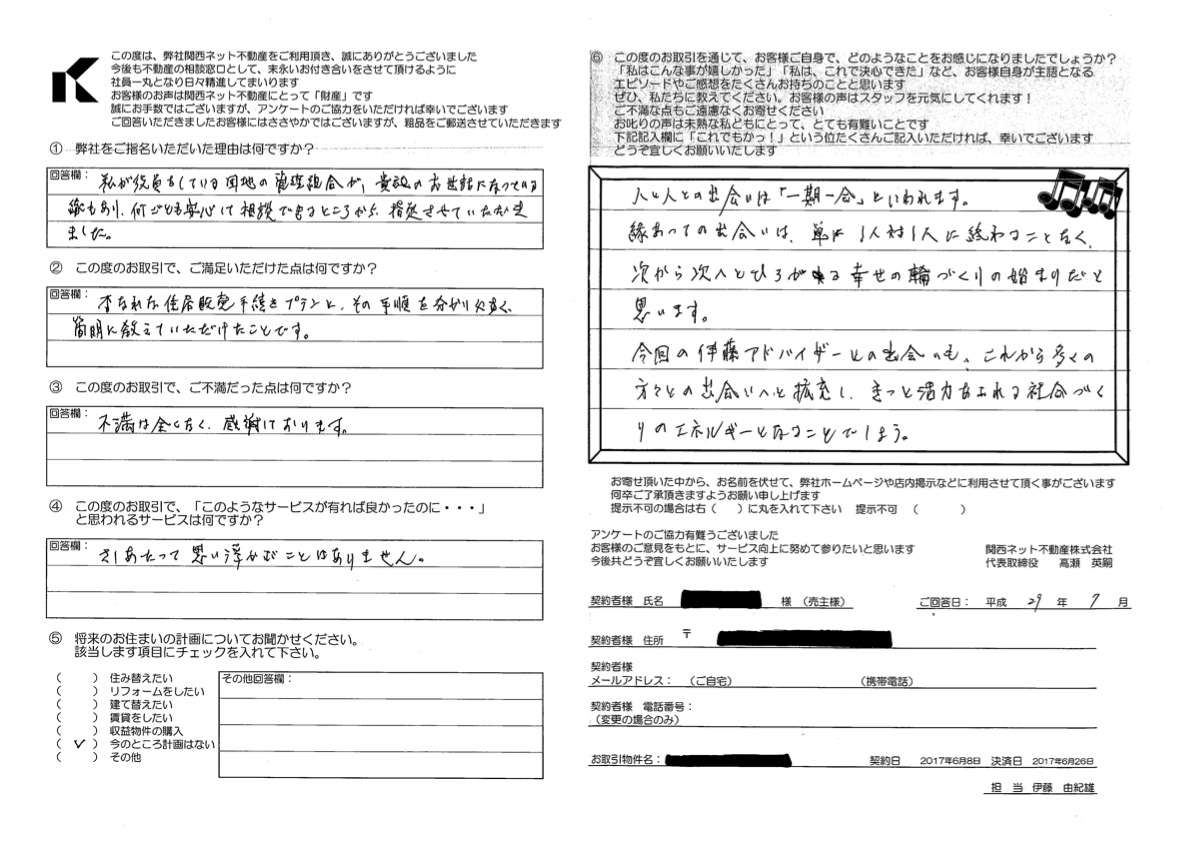 この度は、弊社関西ネット不動産をご利用頂き、誠にありがとうございました
今後も不動産の相談窓口として、末永いお付き合いをさせて頂けるように
社員一丸となり日々精進してまいります
お客様のお声は関西ネット不動産にとって「財産」です
誠にお手数ではございますが、アンケートのご協力をいただければ幸いでございます
ご回答いただきましたお客様にはささやかではございますが、粗品をご郵送させていただきます
① 弊社をご指名いただいた理由は何ですか？
回答欄： 私が役員をしている団地の管理組合が、貴設のお世話になっている
縁もあり、何ごとも安心して相談できるところから、指定させていただき
ました。
② この度のお取引で、ご満足いただけた点は何ですか？
回答欄： 不なれな住居販売手続きプランと、その手順を分かり易く、
簡明に教えていただけたことです。
③ この度のお取引で、ご不満だった点は何ですか？
回答欄： 不満は全くなく、感謝しております。
④ この度のお取引で、「このようなサービスが有れば良かったのに・・・」
と思われるサービスは何ですか？
回答欄： さしあたって思い浮かぶことはありません。
⑤ 将来のお住まいの計画についてお聞かせください。
該当します項目にチェックを入れて下さい。
（ ） 住み替えたい
（ ） リフォームをしたい
（ ） 建て替えたい
（ ） 賃貸をしたい
（ ） 収益物件の購入
（ ✓ ） 今のところ計画はない
（ ） その他
その他回答欄：
⑥ この度のお取引を通じて、お客様ご自身で、どのようなことをお感じになりましたでしょうか？
「私はこんな事が嬉しかった」「私は、これで決心できた」など、お客様自身が主語となる
エピソードやご感想をたくさんお持ちのことと思います
ぜひ、私たちに教えてください。お客様の声はスタッフを元気にしてくれます！
ご不満な点もご遠慮なくお寄せください
お叱りの声は未熟な私どもにとって、とても有難いことです
下記記入欄に「これでもかっ！」という位たくさんご記入いただければ、幸いでございます
どうぞ宜しくお願いいたします
人と人との出会いは「一期一会」といわれます。
縁あっての出会いは、単に1人対1人に終わることなく、
次から次へとひろがる幸せの輪づくりの始まりだと
思います。
今回の伊藤アドバイザーとの出会いも、これから多くの
方々との出会いへと拡充し、きっと活力あふれる社会づく
りのエネルギーとなることでしょう。
お寄せ頂いた中から、お名前を伏せて、弊社ホームページや店内掲示などに利用させて頂く事がございます
何卒ご了承頂きますようお願い申し上げます
提示不可の場合は右（ ）に丸を入れて下さい 提示不可 （ ）
アンケートのご協力有難うございました
お客様のご意見をもとに、サービス向上に努めて参りたいと思います
今後共どうぞ宜しくお願いいたします
関西ネット不動産株式会社
代表取締役 高瀬 英嗣
契約者様 氏名 様 （売主様） ご回答日： 平成 29 年 7 月
契約者様 住所 〒
契約者様
メールアドレス： （ご自宅） （携帯電話）
契約者様 電話番号：
（変更の場合のみ）
お取引物件名： 契約日 2017年6月8日 決済日 2017年6月26日
担 当 伊藤 由紀雄